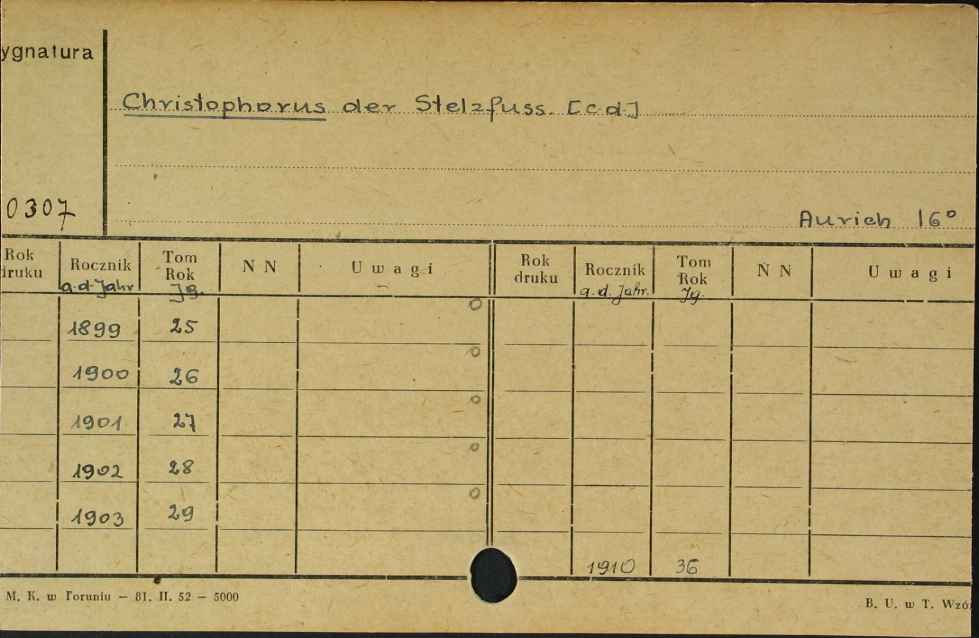 ygnatura
Christophorus der Stelzfuss. [c.d.]
0307
Aurich 16°
Rok druku Rocznik Tom Rok N N Uwagi Rok druku Rocznik Tom Rok N N Uwagi
g.d. Jahr Jg. g.d. Jahr. Jg.
1899 25
1900 26
1901 27
1902 28
1903 29
1910 36
M. K. w Toruniu — 81. II. 52 — 5000
B. U. w T. Wzó